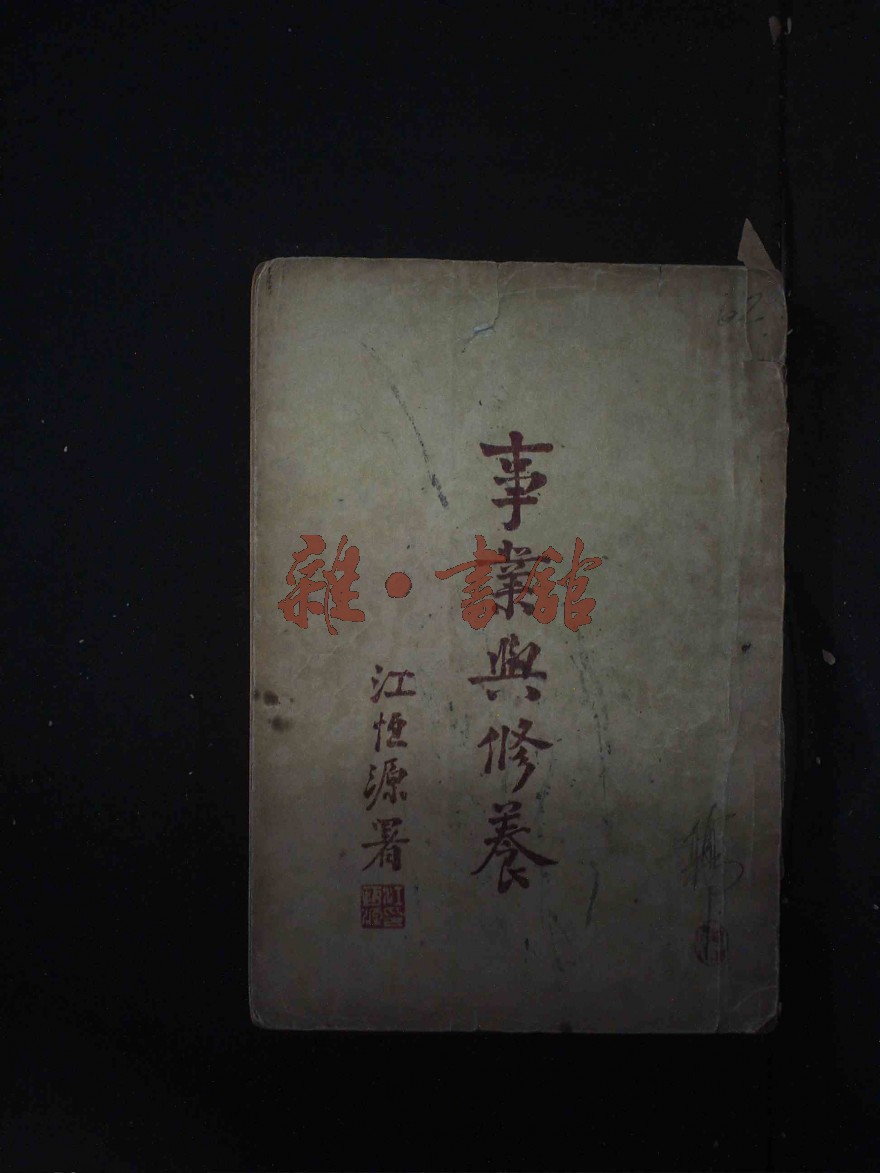 事業與修養
江恒源署
雜·書館